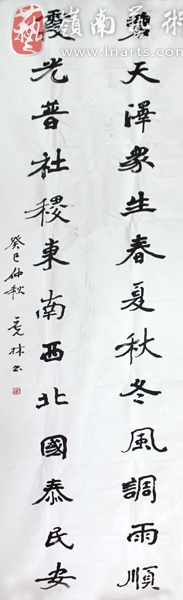 嶺南藝術
www.lnarts.com
碧天澤衆生春夏秋冬風調雨順
光普社稷東南西北國泰民安
癸巳仲秋 林书